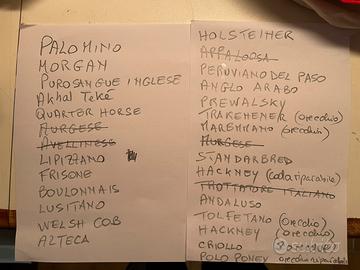 PALOMINO
MORGAN
PUROSANGUE INGLESE
Akhal Teké
QUARTER HORSE
MURGESE
AVELLINESE
LIPIZZANO
FRISONE
BOULONNAIS
LUSITANO
WELSH COB
AZTECA
HOLSTEINER
APPALOOSA
PERUVIANO DEL PASO
ANGLO ARABO
PREWALSKY
TRAKEHENER (orecchio)
MAREMMANO (orecchio)
MURGESE
STANDARBRED
HACKNEY (coda riparabile)
TROTTATORE ITALIANO
ANDALUSO
TOLFETANO (orecchio)
HACKNEY (orecchio)
CRIOLLO (orecchio)
POLO PONEY (orecchio riparabile)
subito